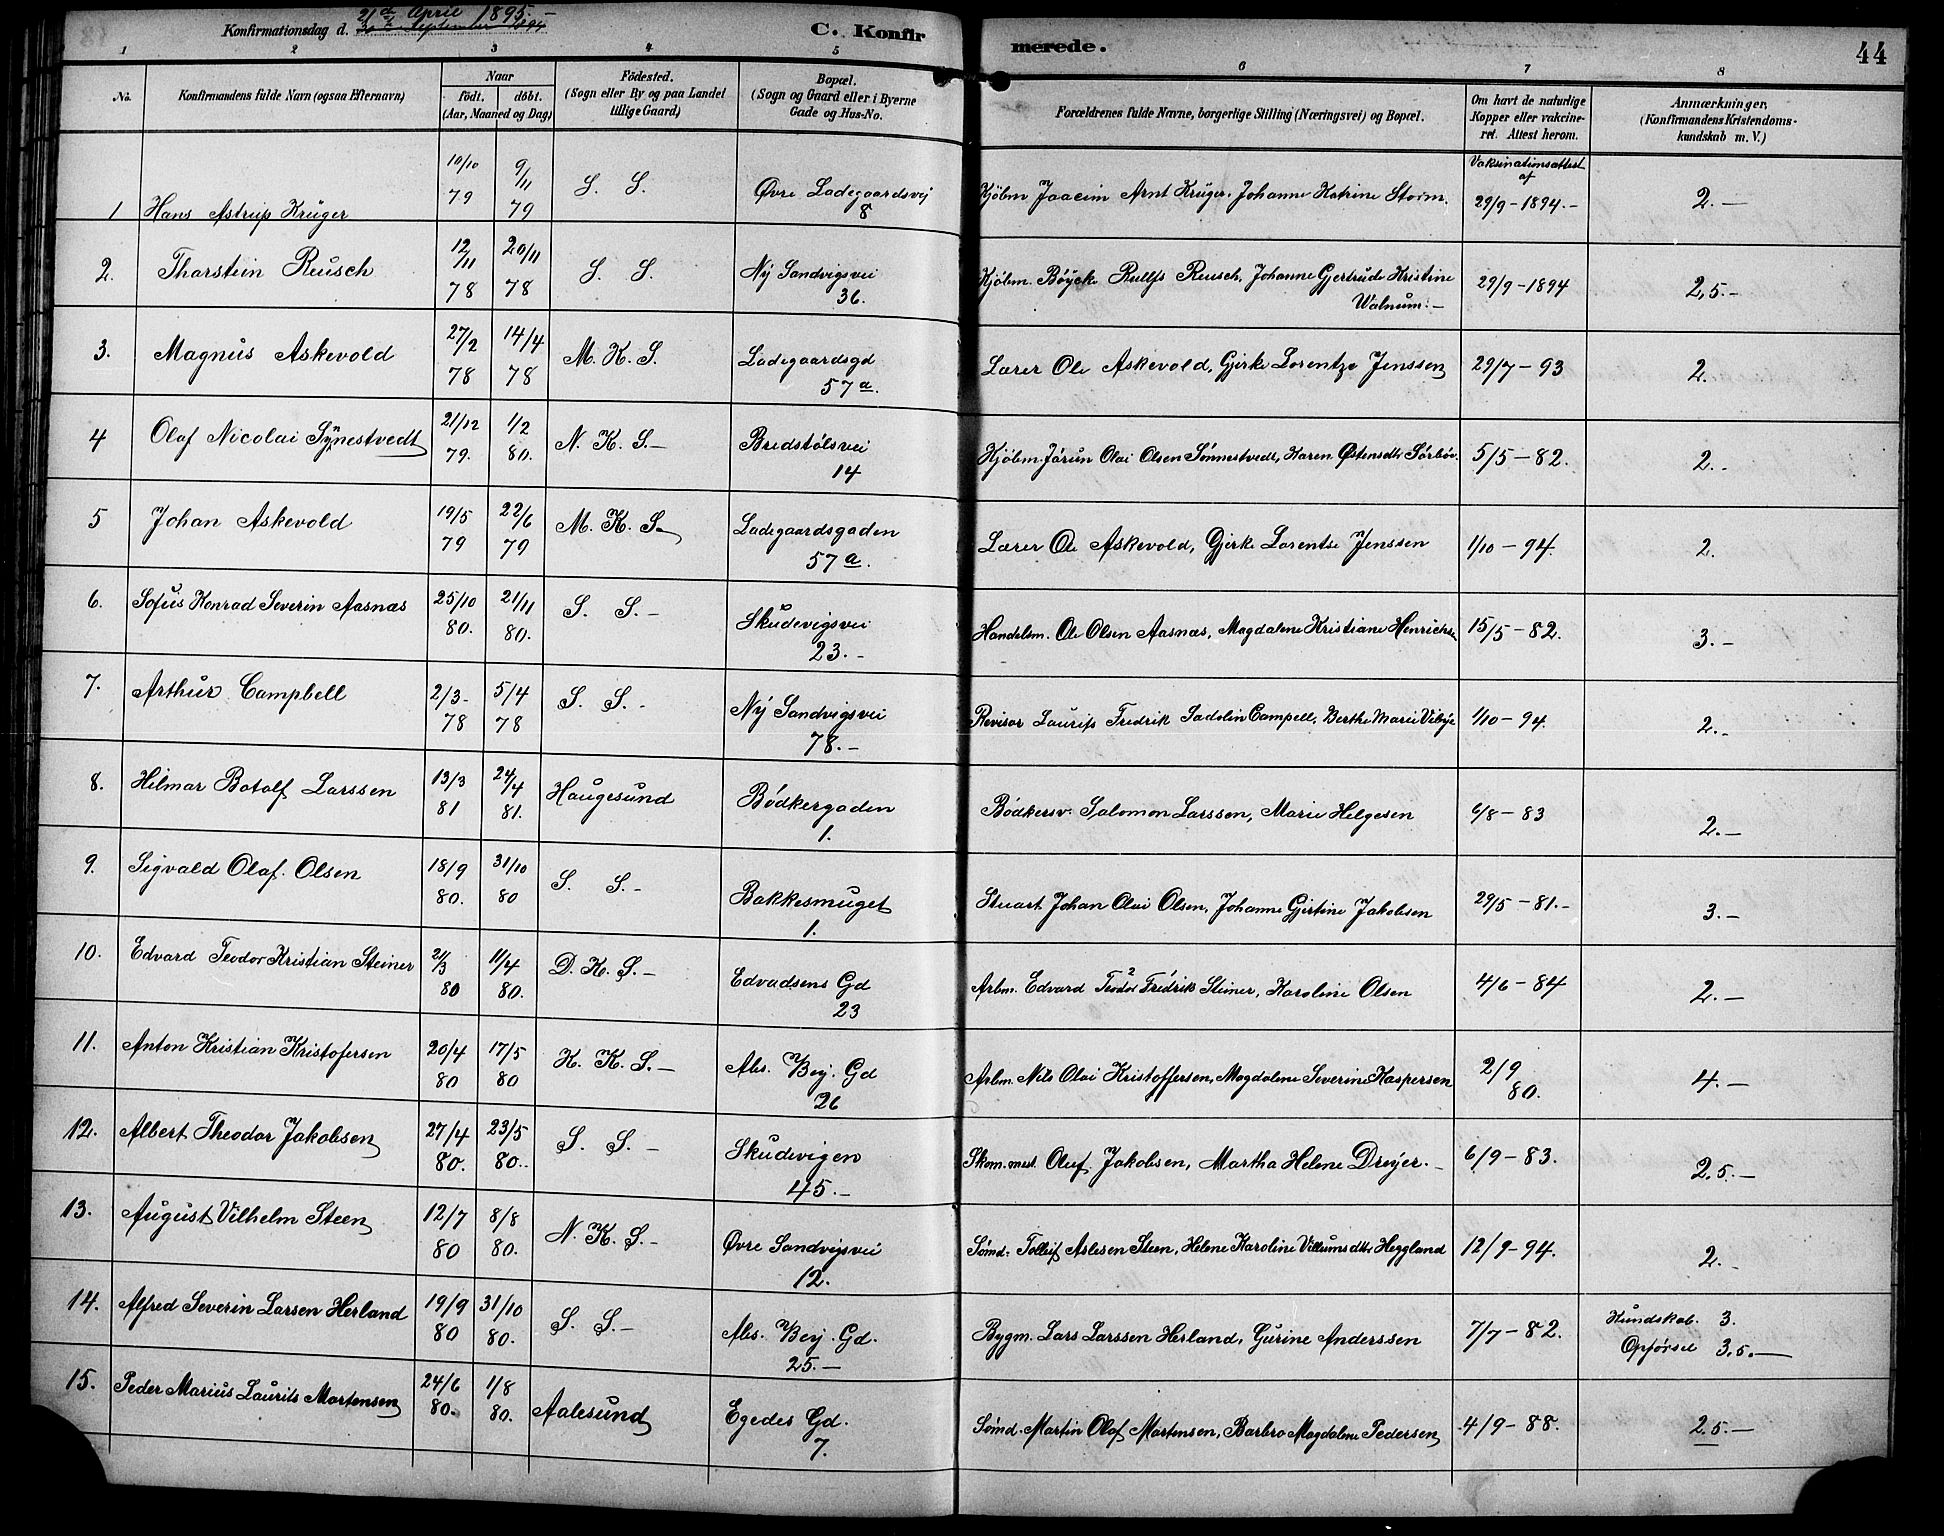 Konfirmationsdag d. 21de April 1895.-
30te September 1894
C. Konfirmerede.
44
1 2 3 4 5 6 7 8
No. | Konfirmandens fulde Navn (ogsaa Efternavn) | Naar født. døbt. (Aar, Maaned og Dag) | Fødested. (Sogn eller By og paa Landet tillige Gaard) | Bopæl. (Sogn og Gaard eller i Byerne Gade og Hus-No. | Forældrenes fulde Navne, borgerlige Stilling (Næringsvei) og Bopæl. | Om havt de naturlige Kopper eller vakcineret. Attest herom. | Anmærkninger, (Konfirmandens Kristendomskundskab m. V.)
1 Hans Astrup Krüger | 10/10 79 | 9/11 79 | S. S. | Øvre Ladegaardsvej 8 | Kjøbm Joacim Arnt Krüger, Johanne Katrine Storm. | Vaksinationsattest af 29/9-1894.- | 2.-
2. Tharstein Reusch | 12/11 78 | 20/11 78 | S. S. | Ny Sandvigsvei 36. | Kjøbm. Bøycke Rullfs Reusch, Johanne Gjertrude Kristine Walnum.- | 29/9-1894 | 2,5.-
3. Magnus Askevold | 27/2 78 | 14/4 78 | M. K. S. | Ladegaardsgd 57a. | Lærer Ole Askevold, Gjerke Lorentze Jenssen | 29/7-93 | 2.
4 Olaf Nicolai Synnestvedt | 21/12 79. | 1/2 80. | N. K. S.- | Bredstølsvei 14 | Kjøbm. Jørun Olai Olsen Sønnestvedt, Karen Østensdtr Sørbøv. | 5/5-82. | 2.-
5 Johan Askevold | 19/5 79 | 22/6 79 | M. K. S. | Ladegaardsgaden 57a. | Lærer Ole Askevold, Gjerke Lorentse Jenssen | 1/10-94. | 2.
6. Sofus Konrad Severin Aasnæs | 25/10 80. | 21/11 80. | S. S.- | Skudevigsvei 23.- | Handelsm. Ole Olsen Aasnæs, Magdalene Kristiane Henrichsen | 15/5-82. | 3.-
7. Arthur Campbell | 2/3- 78 | 5/4 78 | S. S.- | Ny Sandvigsvei 78.- | Revisor Laurits Fredrik Sadolin Campell, Berthe Marie Vibye | 1/10-94. | 2.-
8. Hilmar Botolf Larssen | 13/3 81 | 24/4 81. | Haugesund | Bødkergaden 1. | Bødkersv. Salomon Larssen, Marie Helgesen | 6/8-83 | 2.-
9. Sigvald Olaf. Olsen | 18/9 80. | 31/10 80 | S. S.- | Bakkesmuget 1. | Stuart Johan Olai Olsen, Johanne Gjertine Jakobsen | 29/5-81.- | 3.-
10. Edvard Teodor Kristian Steiner | 2/3 80 | 11/4 80. | D. K. S.- | Edvadsens Gd 23 | Arbm. Edvard Teodor Fredrik Steiner, Karoline Olsen | 4/6-84 | 2.-
11. Anton Kristian Kristofersen | 20/4 80 | 17/5 80 | K. K. S.- | Abs. Bey. Gd 26 | Arbm. Nils Olai Kristoffersen, Magdalene Severine Kaspersen | 2/9 80. | 4.-
12. Albert Theodor Jakobsen | 27/4 80. | 23/5 80.- | S. S.- | Skudevigen 45.- | Skom.mest. Oluf. Jakobsen, Martha Helene Dreyer.- | 6/9-83. | 2,5.-
13. August Vilhelm Steen | 12/7 80 | 8/8 80. | N. K. S.- | Øvre Sandvigsvei 12. | Sømd. Tollef Aslesen Steen, Helene Karoline Villumsdtr Heggland | 12/9-94. | 2.-
14. Alfred Severin Larsen Herland | 19/9 80 | 31/10 80. | S. S.- | Abs. Bey. Gd. 25.- | Bygm. Lars Larssen Herland, Gurine Anderssen | 7/7-82. | Kundskab. 3. Opførsel 3.5.-
15. Peder Marius Laurits Martensen | 24/6 80. | 1/8 80. | Aalesund | Egedes Gd. 7. | Sømd. Martin Olaf Martensen, Barbro Magdalene Pedersen | 4/9-88. | 2.5.-